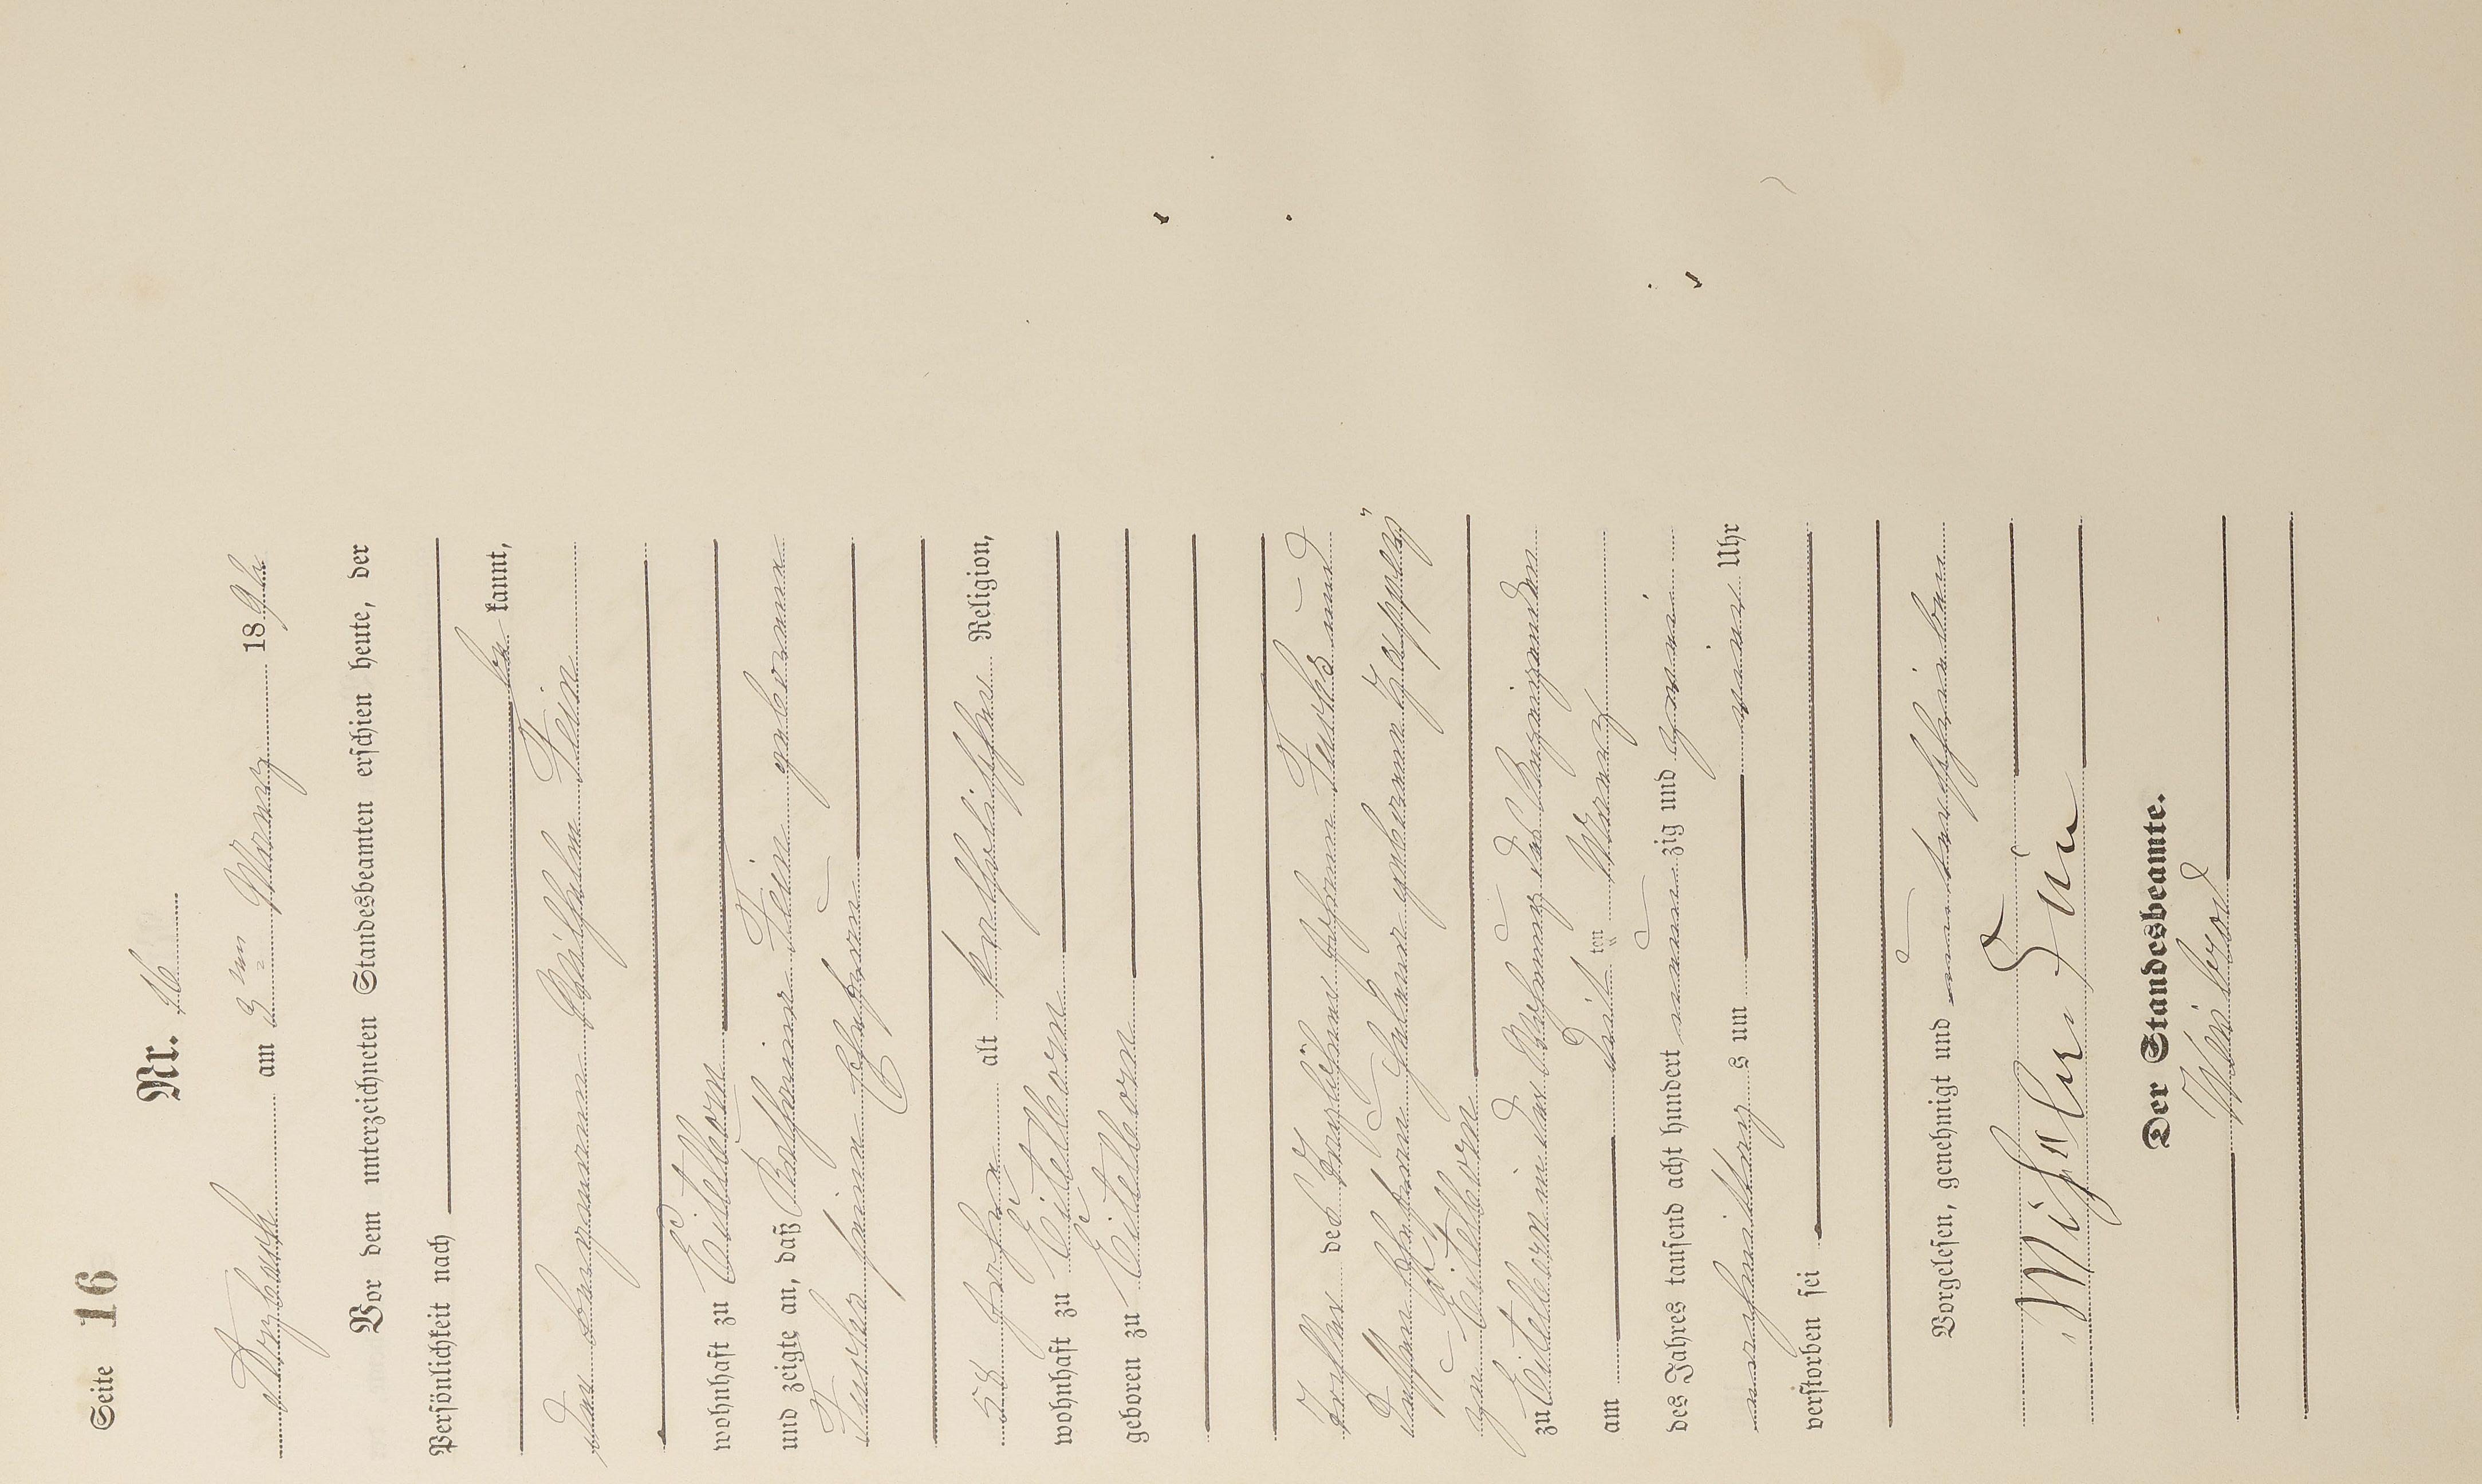 Seite 16
Nr. 16
Arzbach am 3ten Maerz 1892
Vor dem unterzeichneten Standesbeamten erschien heute, der
Persönlichkeit nach
be kannt,
der Bergmann Wilhelm Fein
wohnhaft zu Eitelborn
und zeigte an, daß Katharina Fein geborene
Fuchs, seine Ehefrau
58 Jahre alt katholischer Religion,
wohnhaft zu Eitelborn
geboren zu Eitelborn
Tochter des Johann Fuchs und
dessen Ehefrau geborene
zu Eitelborn
zu Eitelborn in der Wohnung des Anzeigenden
am dritten Maerz
des Jahres tausend acht hundert neun zig und zwei
vormittags um ein Uhr
verstorben sei
Vorgelesen, genehmigt und unterschrieben
Wilhelm Fein
Der Standesbeamte.